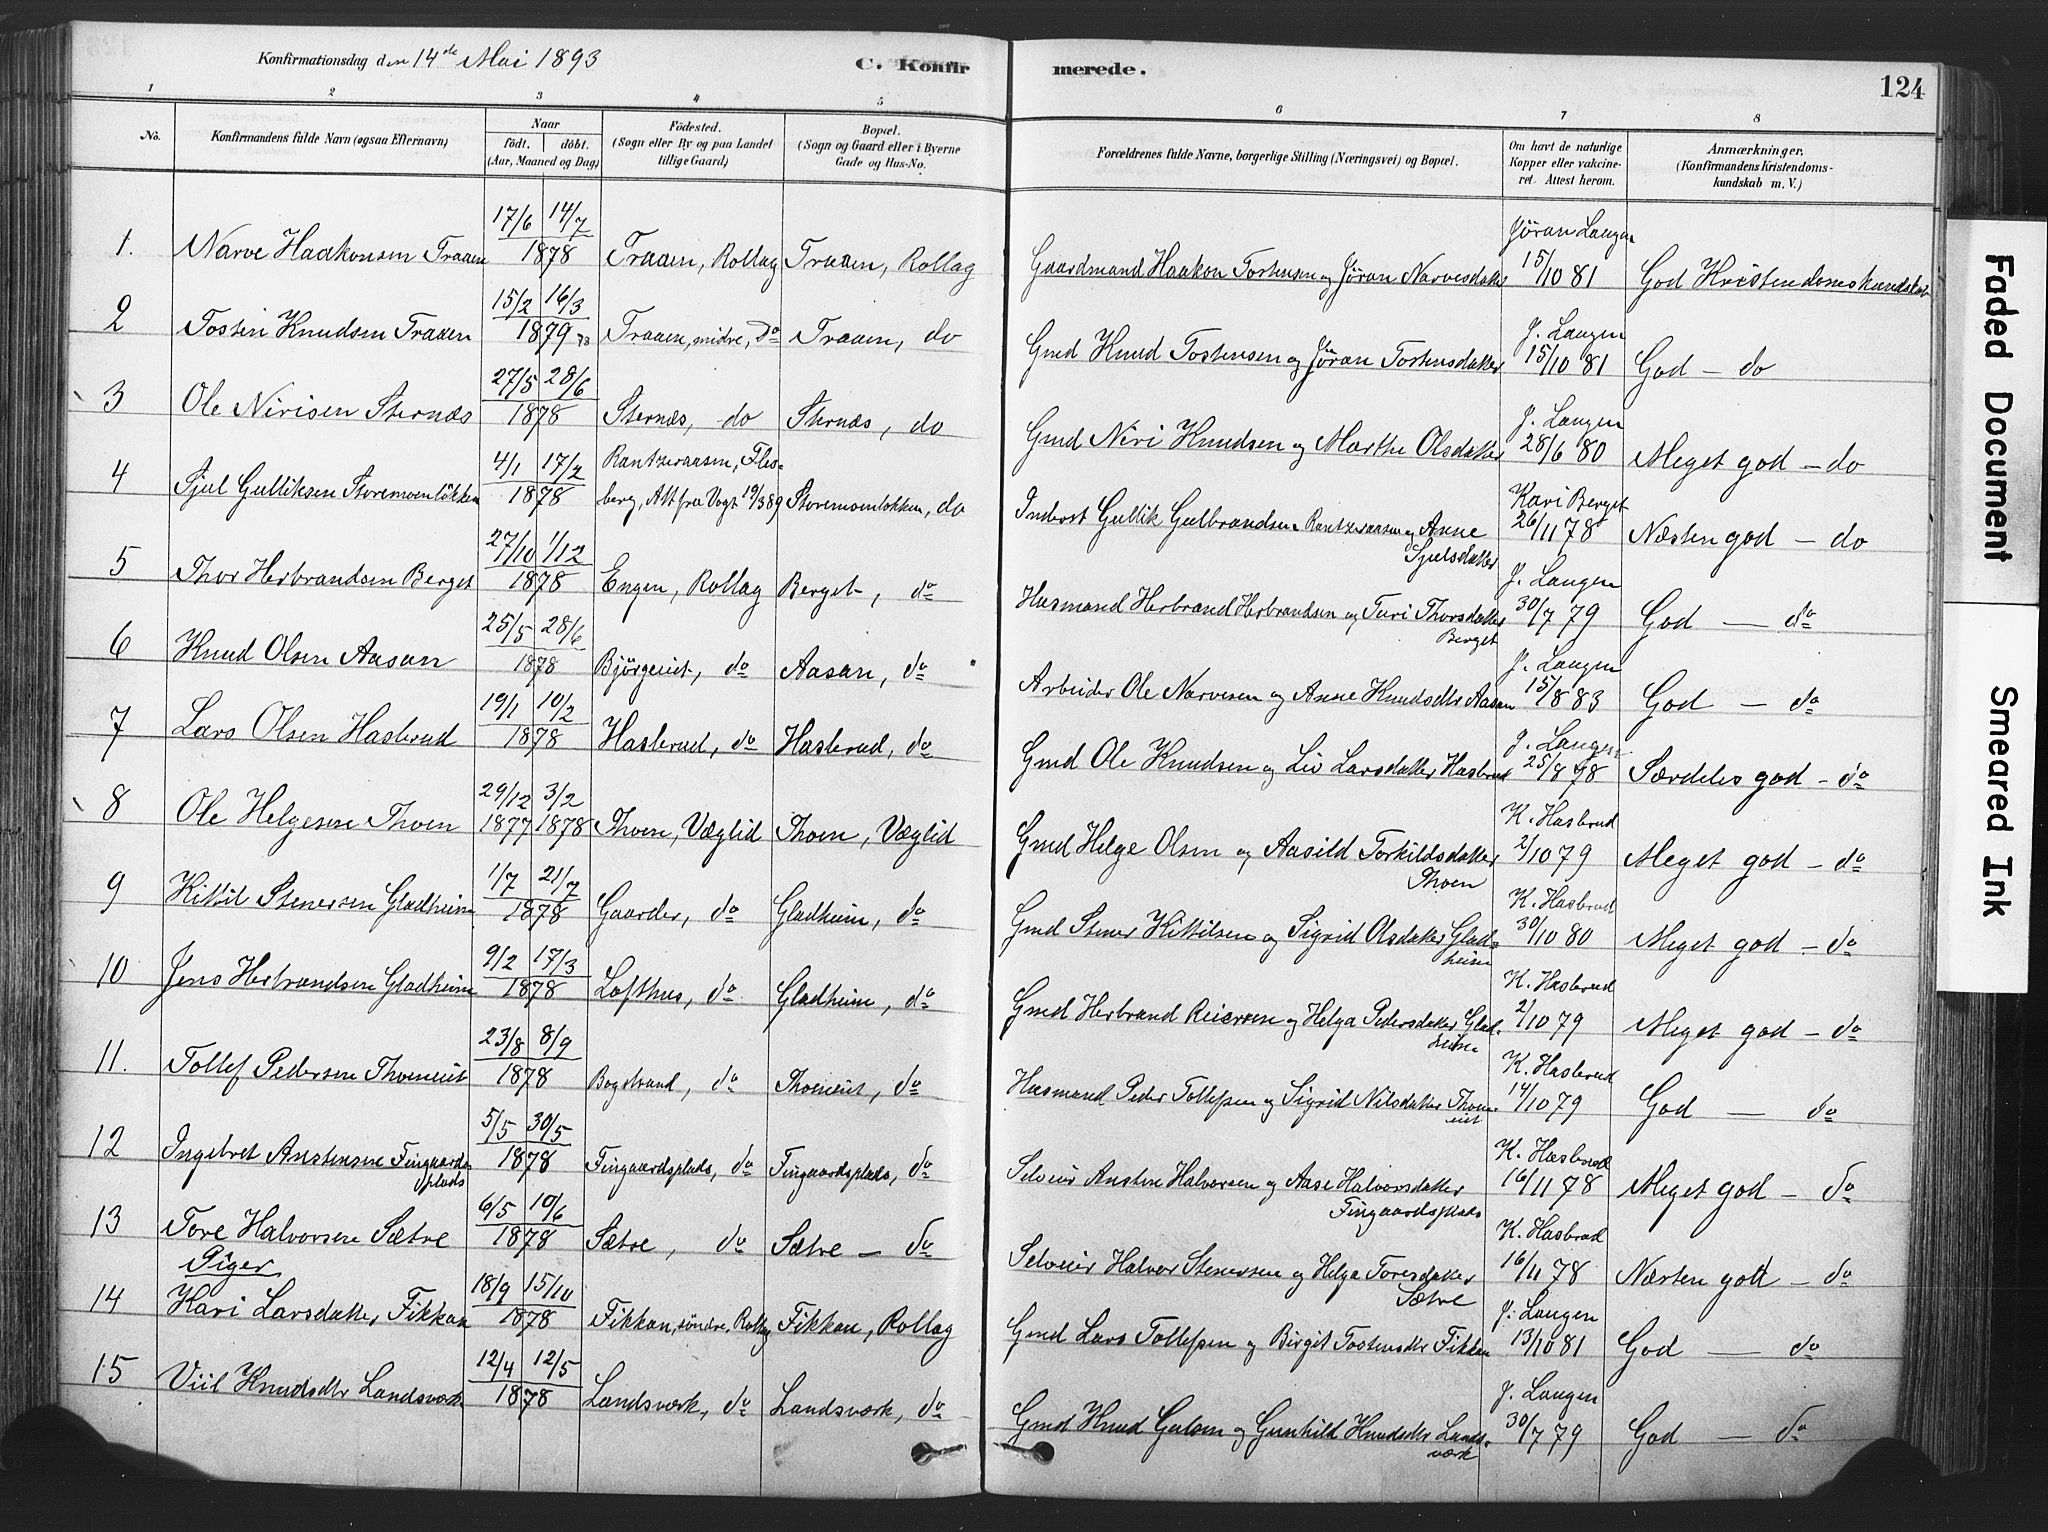 Konfirmationsdag den 14de Mai 1893
C. Konfirmerede.
124
1 2 3 4 5 6 7 8
No.
Konfirmandens fulde Navn (ogsaa Efternavn)
Naar
födt. döbt.
(Aar, Maaned og Dag)
Födested.
(Sogn eller By og paa Landet
tillige Gaard)
Bopæl.
(Sogn og Gaard eller i Byerne
Gade og Hus-No.
Forældrenes fulde Navne, borgerlige Stilling (Næringsvei) og Bopæl.
Om havt de naturlige
Kopper eller vakcine-
ret. Attest herom.
Anmærkninger.
(Konfirmandens Kristendoms-
kundskab m. V.)
1. Narve Haakonsen Traaen 17/6 14/7 1878 Traaen, Rollag Traaen, Rollag Gaardmand Haakon Tostensen og Jöran Narvesdatter Jöran Laugen 15/10 81 God Kristendomskundskab
2 Tosten Knudsen Traaen 15/2 16/3 1879 Traaen, midre, do Traaen, do Gmd Knud Tostensen og Jöran Tostensdatter J. Laugen 15/10 81 God - do
3 Ole Nirisen Sternæs 27/5 28/6 1878 Sternæs, do Sternæs, do Gmd Niri Knudsen og Marthe Olsdatter J. Laugen 28/6 80 Meget god - do
4 Sjul Gulliksen Storemoenlökken 4/1 17/2 1878 Rantzeraasen, Fles-
berg, Att fra Vogt 19/3 89 Storemoenlökken, do Inderst Gullik Gulbrandsen Rantzeraasen og Anne
Sjulsdatter Kari Berget 26/11 78 Næsten god - do
5 Thor Herbrandsen Berget 27/10 1/12 1878 Engen, Rollag Berget, do Husmand Herbrand Herbrandsen og Turi Thorsdatter
Berget J. Laugen 30/7 79 God - do
6 Knud Olsen Aasan 25/5 28/6 1878 Björgeiet, do Aasan, do Arbeider Ole Narvesen og Anne Knudsdtr Aasan J. Laugen 15/8 83 God - do
7 Lars Olsen Hasbrud 19/1 10/2 1878 Hasbrud, do Hasbrud, do Gmd Ole Knudsen og Liv Larsdatter Hasbrud J. Laugen 25/8 78 Særdeles god - do
8 Ole Helgesen Thoen 29/12 1877 3/2 1878 Thoen, Væglid Thoen, Væglid Gmd Helge Olsen og Aasild Torkildsdatter
Thoen K. Hasbrud 2/10 79 Meget god - do
9 Kittil Stenersen Gladheim 1/7 21/7 1878 Gaarder, do Gladheim, do Gmd Stener Kittilsen og Sigrid Olsdatter Glad-
heim K. Hasbrud 30/10 80 Meget god - do
10 Jens Herbrandsen Gladheim 9/2 17/3 1878 Lofthus, do Gladheim, do Gmd Herbrand Reiersen og Helga Pedersdatter Glad-
heim K. Hasbrud 2/10 79 Meget god - do
11. Tollef Pedersen Thoeneiet 23/8 8/9 1878 Bogstrand, do Thoeneiet, do Husmand Peder Tollefsen og Sigrid Nilsdatter Thoen-
eiet K. Hasbrud 14/10 79 God - do
12 Ingebret Anstensen Fingaards-
plads 5/5 30/5 1878 Fingaardsplads, do Fingaardsplads, do Selveier Ansten Halvorsen og Aase Halvorsdatter
Fingaardsplads K. Hasbrud 16/11 78 Meget god - do
13 Tore Halvorsen Sætre 6/5 10/6 1878 Sætre, do Sætre - do Selveier Halvor Stenersen og Helga Toresdatter
Sætre K. Hasbrud 16/11 78 Næsten god - do
Piger
14 Kari Larsdatter Fikkan 18/9 15/10 1878 Fikkan, söndre, Rollag Fikkan, Rollag Gmd Lars Tollefsen og Birgit Tostensdtr Fikkan J. Laugen 13/10 81 God - do
15 Viil Knudsdtr Landsværk 12/4 12/5 1878 Landsværk, do Landsværk, do Gmd Knud Gulsen og Gunhild Knudsdtr Lands-
værk J. Laugen 30/7 79 God - do
Faded Document
Smeared Ink